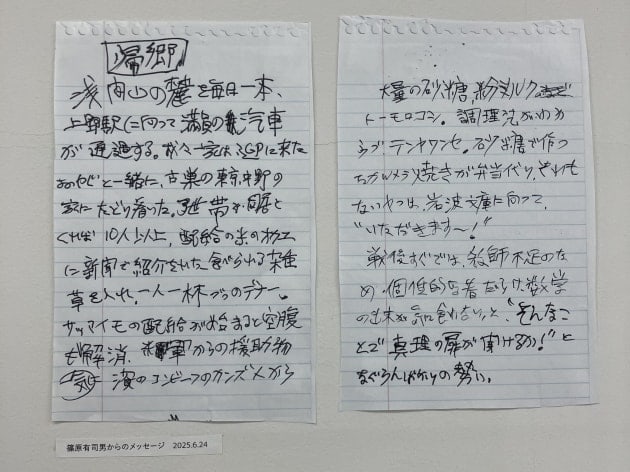 帰郷
浅間山の麓を毎日一本、
上野駅に向って満員の汽車
が通過する。我々一家は 見に来た
おやじと一緒に、古巣の東京中野の
家にたどり着いた。 世帯が同居と
くれば10人以上、配給の米の
に新聞で紹介された食べられる雑
草を入れ、一人一杯づつのディナー。
サツマイモの配給が始まると空腹
も解消、 軍からの援助物
濱のコンビーフのカンヅメから
大量の砂糖、粉ミルク
トーモロコシ。調理法がわか
らづ、テンヤワンヤ。砂糖で作っ
たカルメラ焼きが弁当代り、それも
ないやつは、岩波文庫に向って、
"いただきます〜!"
戦後すぐでは、教師不足のた
め、個性的な 数学
の出来 と、"そんなこ
とで真理の扉が開けるか!"と
なぐらんばかりの勢い。
篠原有司男からのメッセージ 2025.6.24